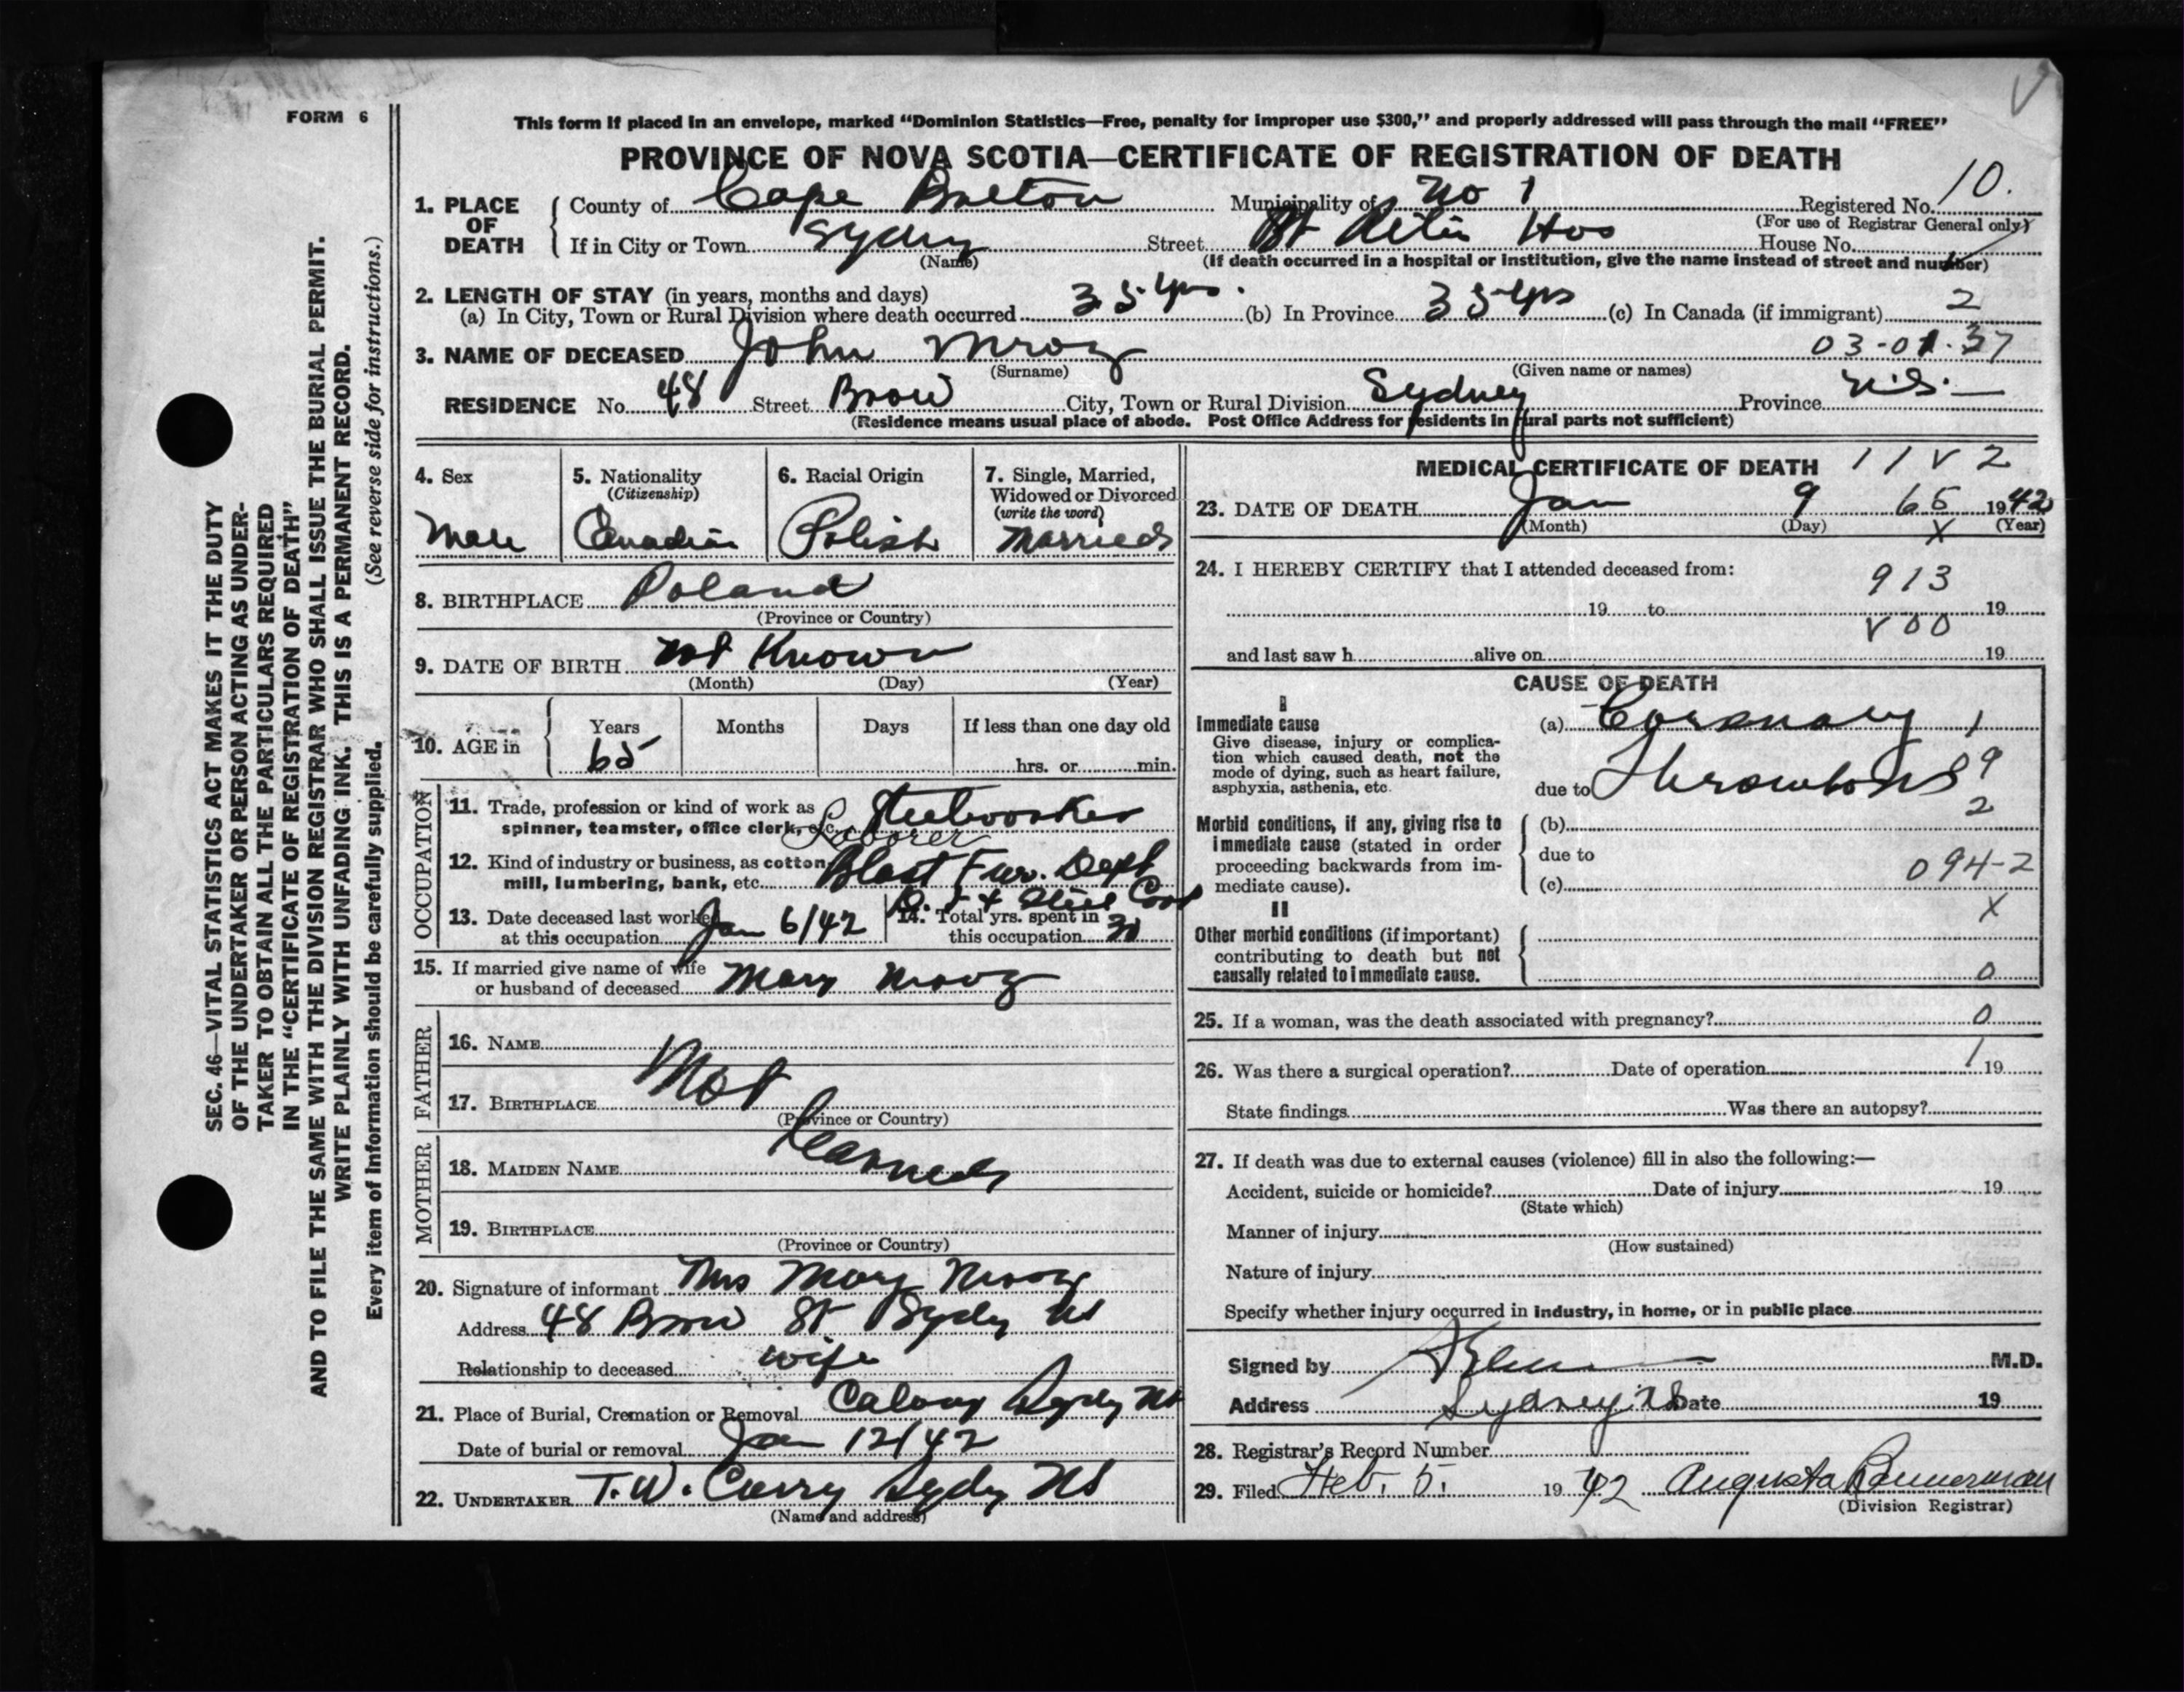 FORM 6
SEC. 46—VITAL STATISTICS ACT MAKES IT THE DUTY
OF THE UNDERTAKER OR PERSON ACTING AS UNDER-
TAKER TO OBTAIN ALL THE PARTICULARS REQUIRED
IN THE "CERTIFICATE OF REGISTRATION OF DEATH"
AND TO FILE THE SAME WITH THE DIVISION REGISTRAR WHO SHALL ISSUE THE BURIAL PERMIT.
WRITE PLAINLY WITH UNFADING INK. THIS IS A PERMANENT RECORD.
Every item of Information should be carefully supplied. (See reverse side for instructions.)
This form if placed in an envelope, marked "Dominion Statistics—Free, penalty for improper use $300," and properly addressed will pass through the mail "FREE"
PROVINCE OF NOVA SCOTIA—CERTIFICATE OF REGISTRATION OF DEATH
1. PLACE OF DEATH County of Cape Breton Municipality of No 1 Registered No. 10.
(For use of Registrar General only)
If in City or Town Sydney Street St Rita's Hos House No.
(Name) (If death occurred in a hospital or institution, give the name instead of street and number)
2. LENGTH OF STAY (in years, months and days)
(a) In City, Town or Rural Division where death occurred 35 yrs. (b) In Province 35 yrs (c) In Canada (if immigrant) 2
3. NAME OF DECEASED John Mroz 03-01-37
(Surname) (Given name or names)
RESIDENCE No. 48 Street Brow City, Town or Rural Division Sydney Province N.S.
(Residence means usual place of abode. Post Office Address for residents in rural parts not sufficient)
4. Sex Male
5. Nationality (Citizenship) Canadian
6. Racial Origin Polish
7. Single, Married, Widowed or Divorced (write the word) Married
8. BIRTHPLACE Poland
(Province or Country)
9. DATE OF BIRTH Not Known
(Month) (Day) (Year)
10. AGE in Years Months Days If less than one day old
65 hrs. or min.
OCCUPATION
11. Trade, profession or kind of work as spinner, teamster, office clerk, etc. Steelworker
Laborer
12. Kind of industry or business, as cotton mill, lumbering, bank, etc. Blast Fur. Dept
13. Date deceased last worked at this occupation Jan 6/42
14. Total yrs. spent in this occupation
15. If married give name of wife or husband of deceased Mary Mroz
FATHER
16. NAME
Not
17. BIRTHPLACE
(Province or Country)
MOTHER
Learned
18. MAIDEN NAME
19. BIRTHPLACE
(Province or Country)
20. Signature of informant Mrs Mary Mroz
Address 48 Brow St Sydney NS
Relationship to deceased wife
21. Place of Burial, Cremation or Removal Calvary Sydney NS
Date of burial or removal Jan 12/42
22. UNDERTAKER T.W. Curry Sydney NS
(Name and address)
MEDICAL CERTIFICATE OF DEATH 11 V 2
23. DATE OF DEATH Jan 9 65 1942
(Month) (Day) X (Year)
24. I HEREBY CERTIFY that I attended deceased from:
913
19 to 19
V00
and last saw h alive on 19
CAUSE OF DEATH
I
Immediate cause
Give disease, injury or complica-
tion which caused death, not the
mode of dying, such as heart failure,
asphyxia, asthenia, etc.
(a) Coronary 1
due to Thrombosis 9
2
Morbid conditions, if any, giving rise to
immediate cause (stated in order
proceeding backwards from im-
mediate cause).
(b)
due to
(c) 094-2
X
II
Other morbid conditions (if important)
contributing to death but not
causally related to immediate cause.
0
25. If a woman, was the death associated with pregnancy? 0
26. Was there a surgical operation? Date of operation 1 19
State findings Was there an autopsy?
27. If death was due to external causes (violence) fill in also the following:—
Accident, suicide or homicide? Date of injury 19
(State which)
Manner of injury
(How sustained)
Nature of injury
Specify whether injury occurred in industry, in home, or in public place
Signed by M.D.
Address Sydney NS Date 19
28. Registrar's Record Number
29. Filed Feb. 5. 1942 Augusta Bannerman
(Division Registrar)